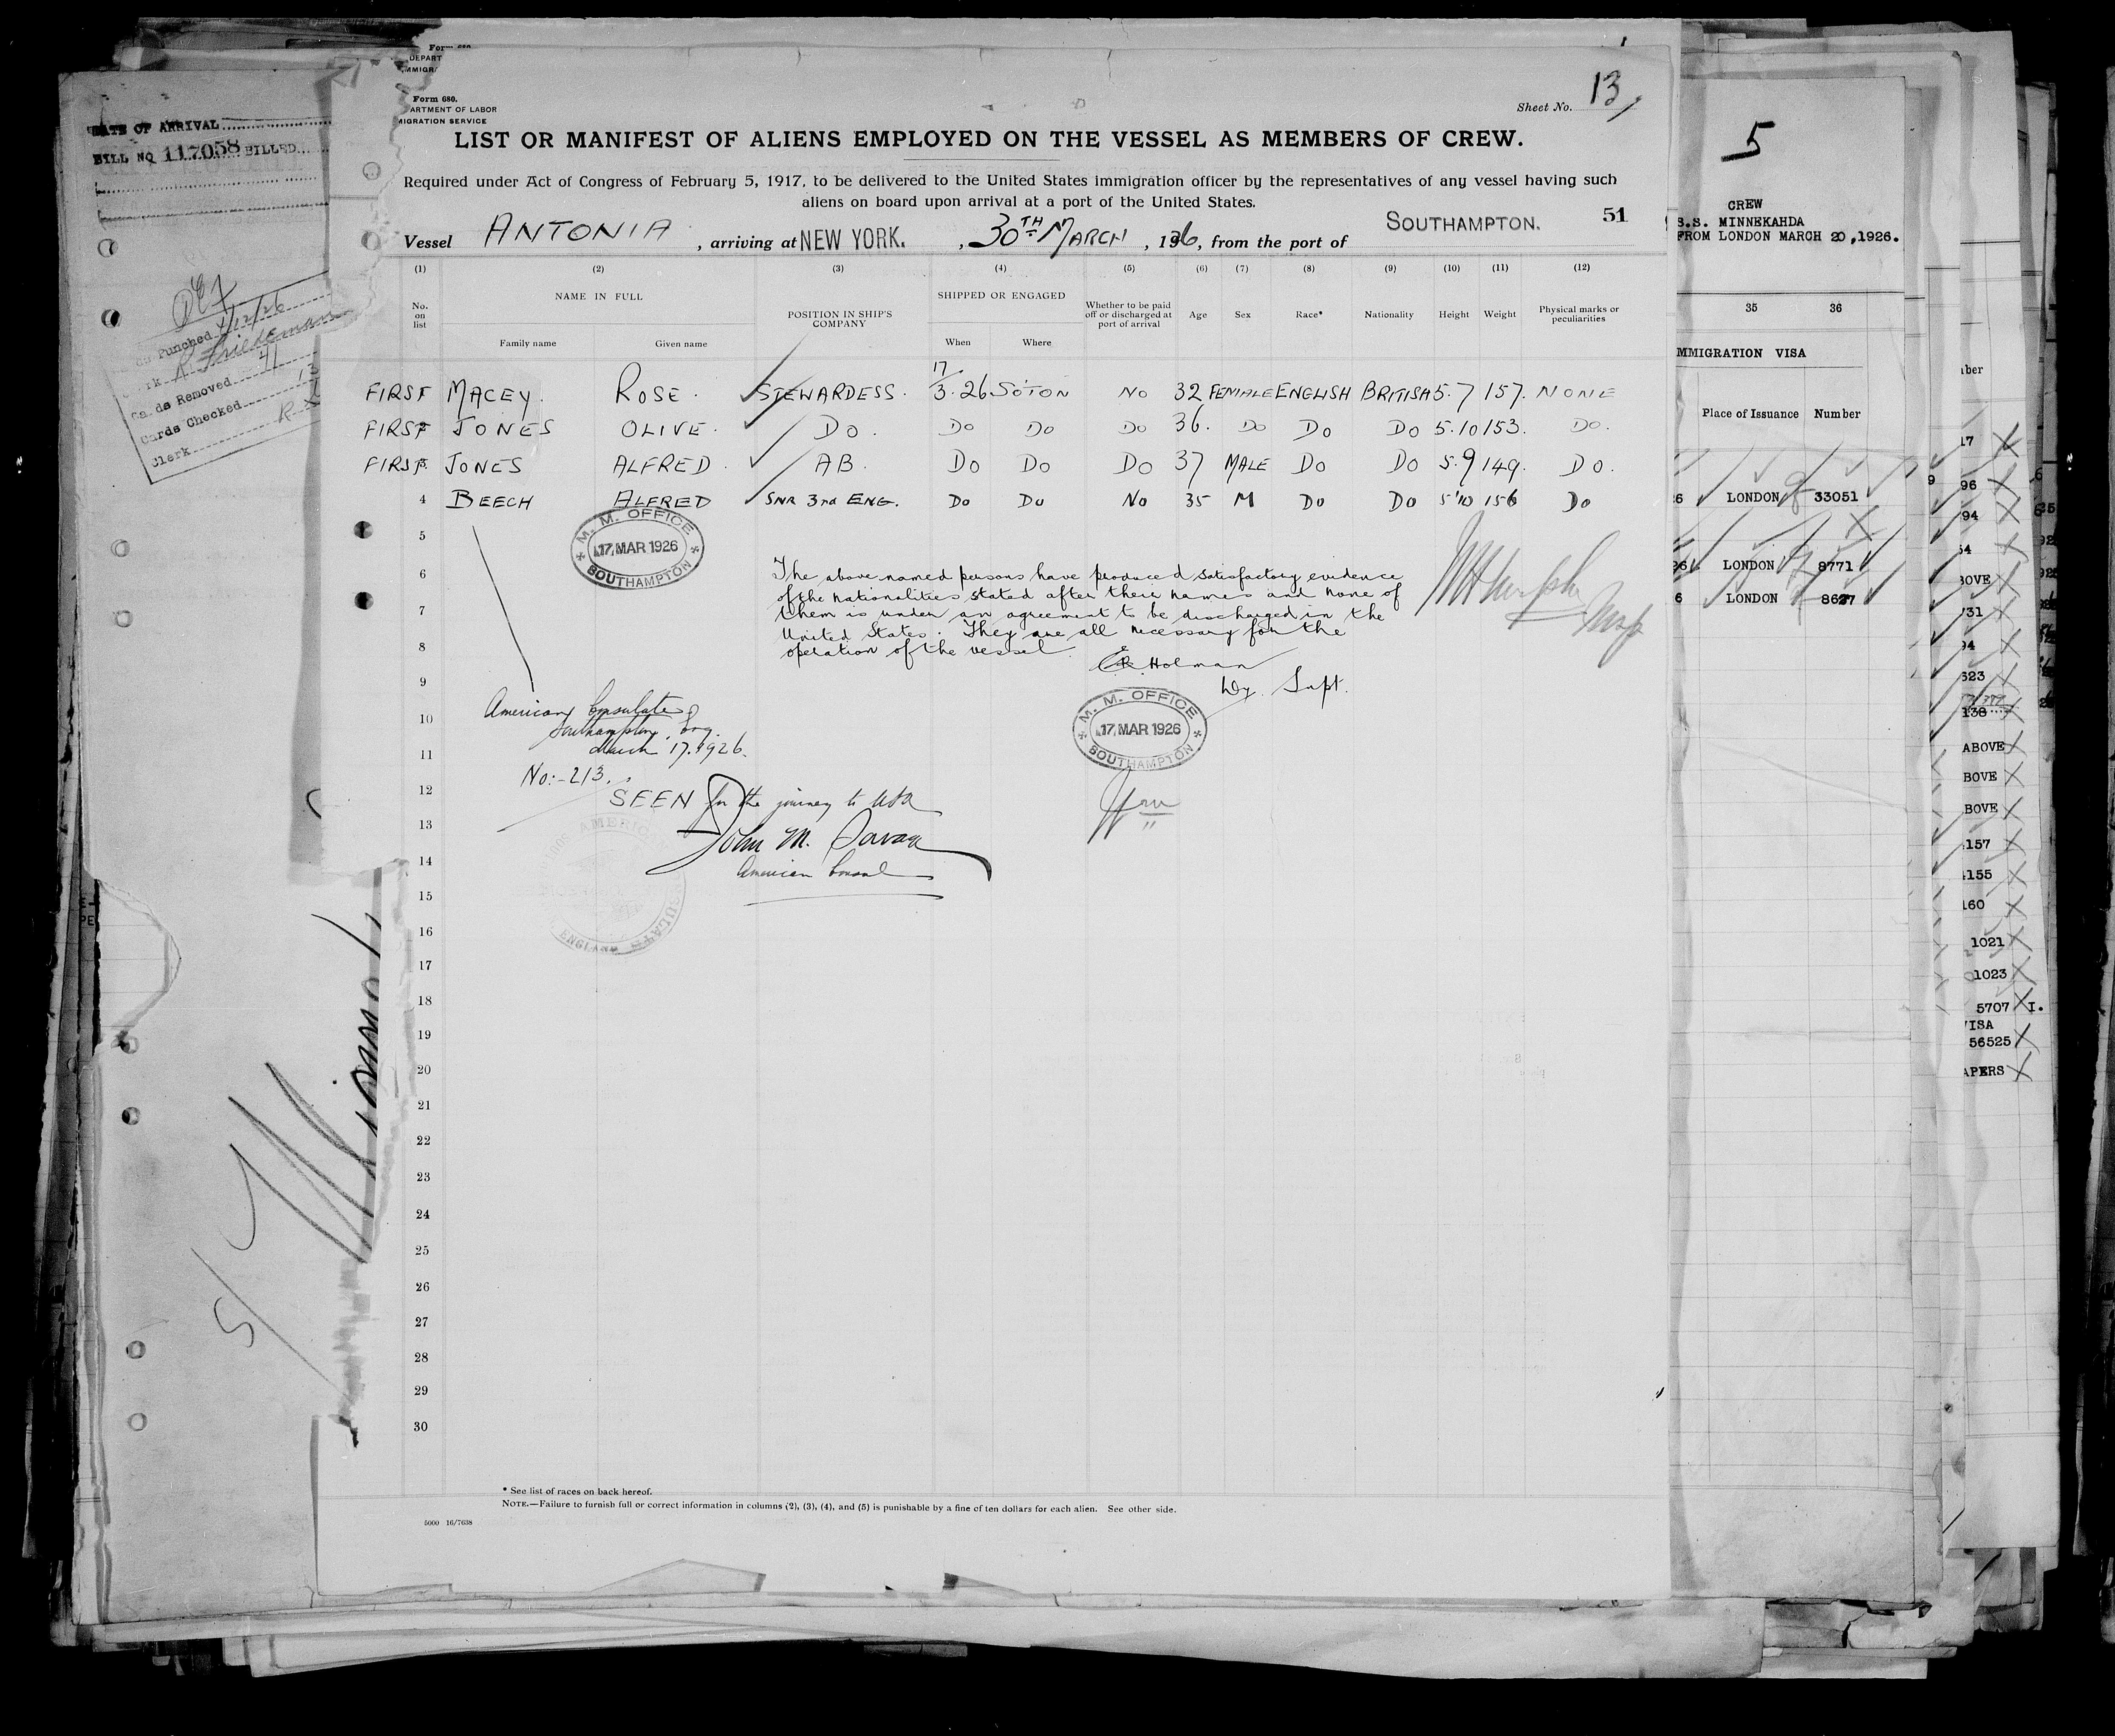 DATE OF ARRIVAL
BILL NO 117058 BILLED
Punched 4/12/26
R Friedeman
Cards Removed 41
Cards Checked 13
Clerk
Form 680.
DEPART
Form 680.
ARTMENT OF LABOR
MIGRATION SERVICE
Sheet No. 13
LIST OR MANIFEST OF ALIENS EMPLOYED ON THE VESSEL AS MEMBERS OF CREW.
Required under Act of Congress of February 5, 1917, to be delivered to the United States immigration officer by the representatives of any vessel having such
aliens on board upon arrival at a port of the United States.
51
Vessel ANTONIA, arriving at NEW YORK., 30TH MARCH, 1926, from the port of SOUTHAMPTON.
(1) (2) (3) (4) (5) (6) (7) (8) (9) (10) (11) (12)
No. on list NAME IN FULL POSITION IN SHIP'S COMPANY SHIPPED OR ENGAGED Whether to be paid off or discharged at port of arrival Age Sex Race* Nationality Height Weight Physical marks or peculiarities
Family name Given name When Where
FIRST MACEY. ROSE. STEWARDESS. 17/3.26 SOTON NO 32 FEMALE ENGLISH BRITISH 5.7 157. NONE
FIRST JONES OLIVE. DO. DO DO DO 36. DO DO DO 5.10 153. DO.
FIRST JONES ALFRED. AB. DO DO DO 37 MALE DO DO 5.9 149. DO.
4 BEECH ALFRED SNR 3rd ENG. DO DO NO 35 M DO DO 5'10 156 DO
5
M. M. OFFICE
17 MAR 1926
SOUTHAMPTON
6
7
8
The above named persons have produced satisfactory evidence
of the nationalities stated after their names and none of
them is under an agreement to be discharged in the
United States. They are all necessary for the
operation of the vessel
Holman
Dy. Supt.
9
10
11
American Consulate
Southampton, Eng.
March 17. 1926.
No:-213.
M. M. OFFICE
17 MAR 1926
SOUTHAMPTON
12
SEEN for the journey to USA
13
John M. Savage
14
American Consul
15
16
ENGLAND
17
18
19
20
21
22
23
24
25
26
27
28
29
30
* See list of races on back hereof.
NOTE.—Failure to furnish full or correct information in columns (2), (3), (4), and (5) is punishable by a fine of ten dollars for each alien. See other side.
5000 16/7638
5
CREW
S.S. MINNEKAHDA
FROM LONDON MARCH 20,1926.
35 36
MMIGRATION VISA
Place of Issuance Number
LONDON 33051
LONDON 8771
LONDON 8627
17
96
94
54
BOVE
731
94
623
138
ABOVE
BOVE
ABOVE
157
155
160
1021
1023
5707 I.
VISA
56525
APERS